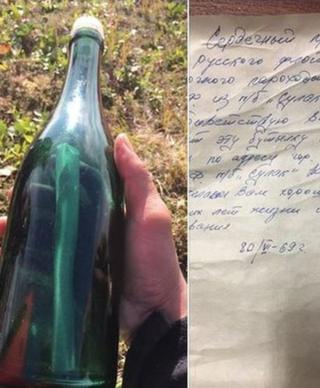 Сердечный п
русского фло
очного пароходс
ф из п/б „Сулак
Приветствую в
т эту бутылку
по адресу гор.
ф п/б „Сулак" В
елаем Вам хорош
их лет жизни с
вания
20/VI-69г.